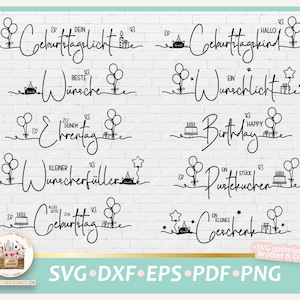 DEIN
Geburtstagslicht
HALLO
Geburtstagskind
BESTE
Wünsche
EIN
Wunschlicht
ZU DEINEM
Ehrentag
HAPPY
Birthday
KLEINER
Wunscherfüller
EIN STÜCK
Pustekuchen
ALLES GUTE ZUM
Geburtstag
EIN KLEINES
Geschenk
+SVG optimized
Brother &
SVG•DXF•EPS•PDF•PNG